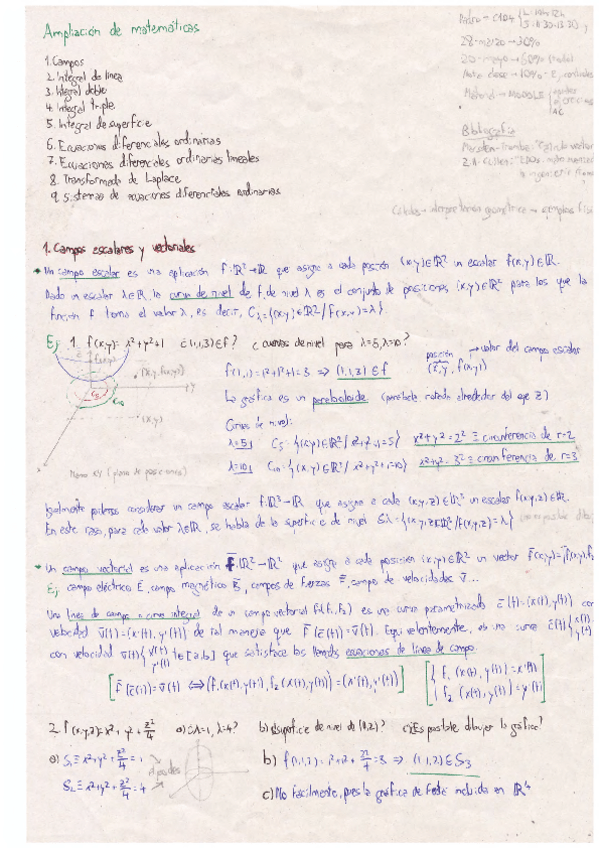 Ampliación de matemáticas
1. Campos
2. Integral de línea
3. Integral doble
4. Integral triple
5. Integral de superficie
6. Ecuaciones diferenciales ordinarias
7. Ecuaciones diferenciales ordinarias lineales
8. Transformada de Laplace
9. Sistemas de ecuaciones diferenciales ordinarias
Pedro - C104
28-marzo → 30%
20-mayo → 60%
Material → MOODLE
Bibliografía
1. Campos escalares y vectoriales
* Un campo escalar es una aplicación f: ℝ² → ℝ que asigna a cada posición (x,y)∈ℝ² un escalar f(x,y)∈ℝ.
Dado un escalar λ∈ℝ, la curva de nivel de f, de nivel λ es el conjunto de posiciones (x,y)∈ℝ² para los que la
función f toma el valor λ, es decir, Cλ={(x,y)∈ℝ²/f(x,y)=λ}.
Ej 1. f(x,y)= x²+y²+1 ¿(1,1,3)∈f? ¿curvas de nivel para λ=5, λ=10?
posición → valor del campo escalar
(x,y, f(x,y))
f(1,1)=1²+1²+1=3 ⇒ (1,1,3)∈f
La gráfica es un paraboloide (parábola rotada alrededor del eje z)
Curvas de nivel:
λ=5; C₅={(x,y)∈ℝ²/x²+y²+1=5} x²+y²=2² ≡ circunferencia de r=2
λ=10; C₁₀={(x,y)∈ℝ²/x²+y²+1=10} x²+y²=3² ≡ circunferencia de r=3
(x,y,f(x,y))
(x,y)
Plano XY (plano de posiciones)
Igualmente podemos considerar un campo escalar f: ℝ³→ℝ que asigna a cada (x,y,z)∈ℝ³ un escalar f(x,y,z)∈ℝ.
En este caso, para cada valor λ∈ℝ, se habla de la superficie de nivel Sλ={(x,y,z)∈ℝ³/f(x,y,z)=λ}
* Un campo vectorial es una aplicación F: ℝ²→ℝ² que asigna a cada posición (x,y)∈ℝ² un vector
Ej campo eléctrico E, campo magnético B, campos de fuerzas F, campo de velocidades V...
Una línea de campo o curva integral de un campo vectorial F=(f₁,f₂) es una curva parametrizada c(t)=(x(t), y(t)) con
velocidad v(t)=(x'(t), y'(t)) de tal manera que F(c(t))=v(t). Equivalentemente, es una curva
con velocidad t∈[a,b] que satisface las llamadas ecuaciones de línea de campo.
[F(c(t))=v(t) ⟺ (f₁(x(t),y(t)), f₂(x(t),y(t)))=(x'(t), y'(t))]
f₁(x(t), y(t))=x'(t)
f₂(x(t), y(t))=y'(t)
2. f(x,y,z)=x²+y²+z²/4 a) ¿λ=1, λ=4? b) c) ¿Es posible dibujar la gráfica?
a) S₁ ≡ x²+y²+z²/4=1
b) f(1,1,2)=1²+1²+2²/4=3 ⇒ (1,1,2)∈S₃
c) No fácilmente, pues la gráfica de f está incluida en ℝ⁴